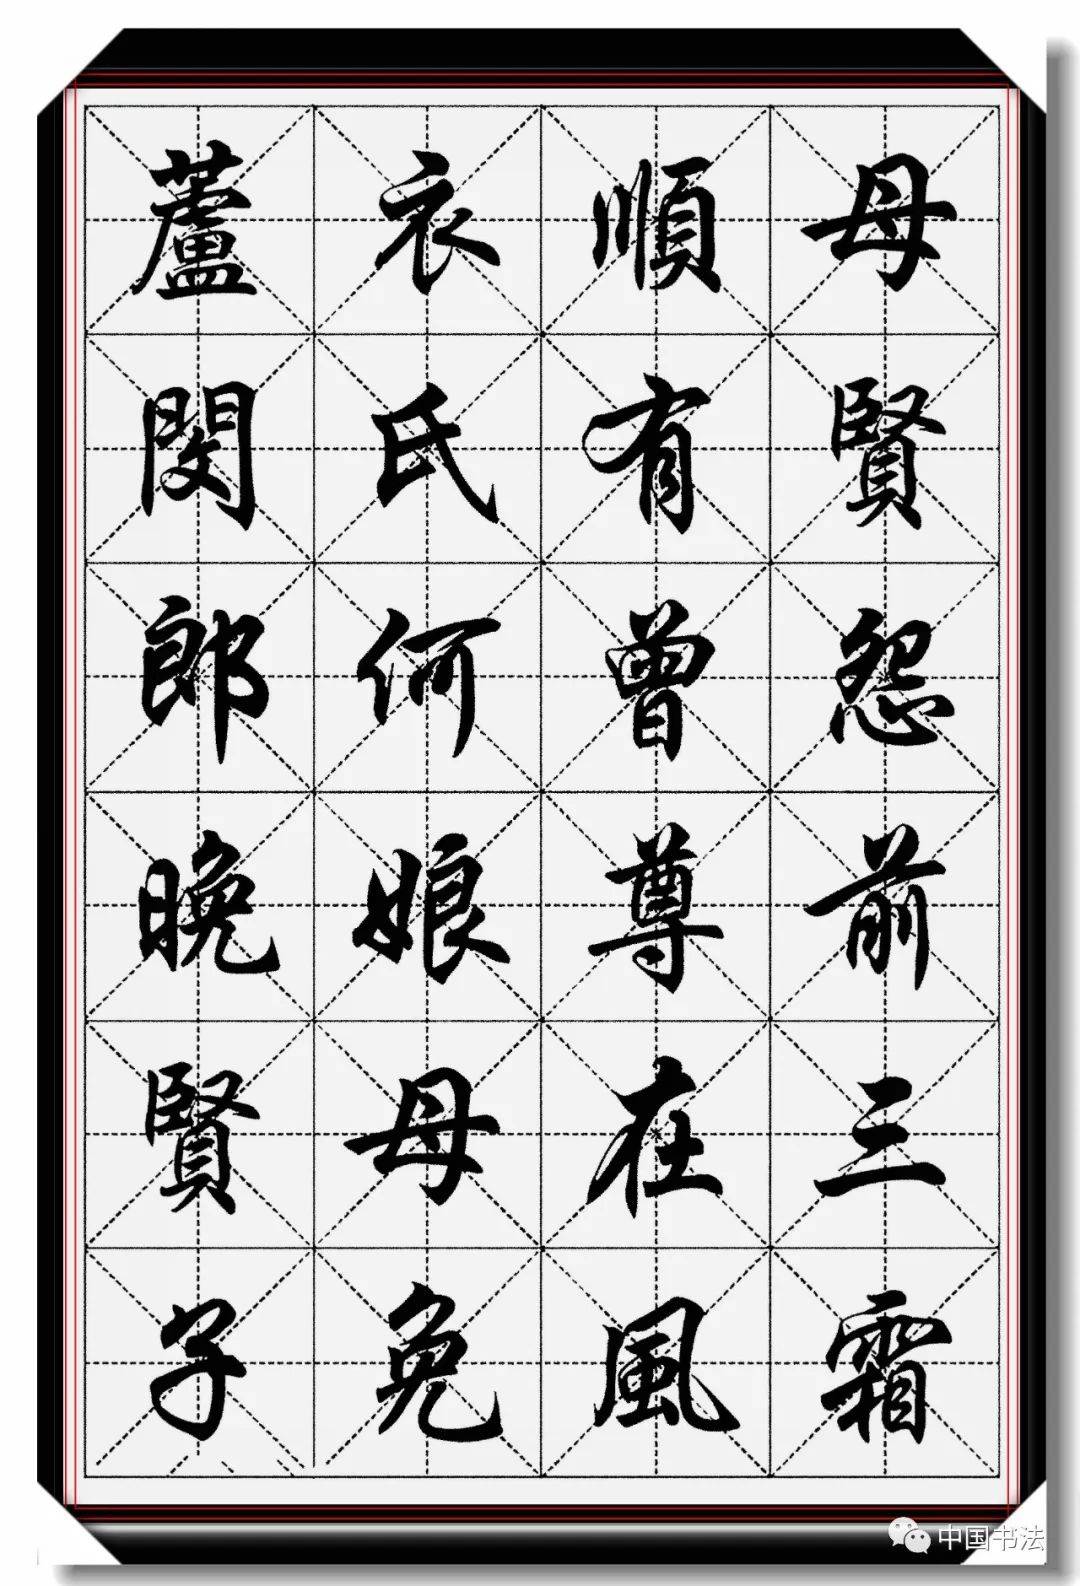 蘆衣順母
閔氏有賢
郎何曾怨
晚娘尊前
賢母在三
子免風霜
中国书法